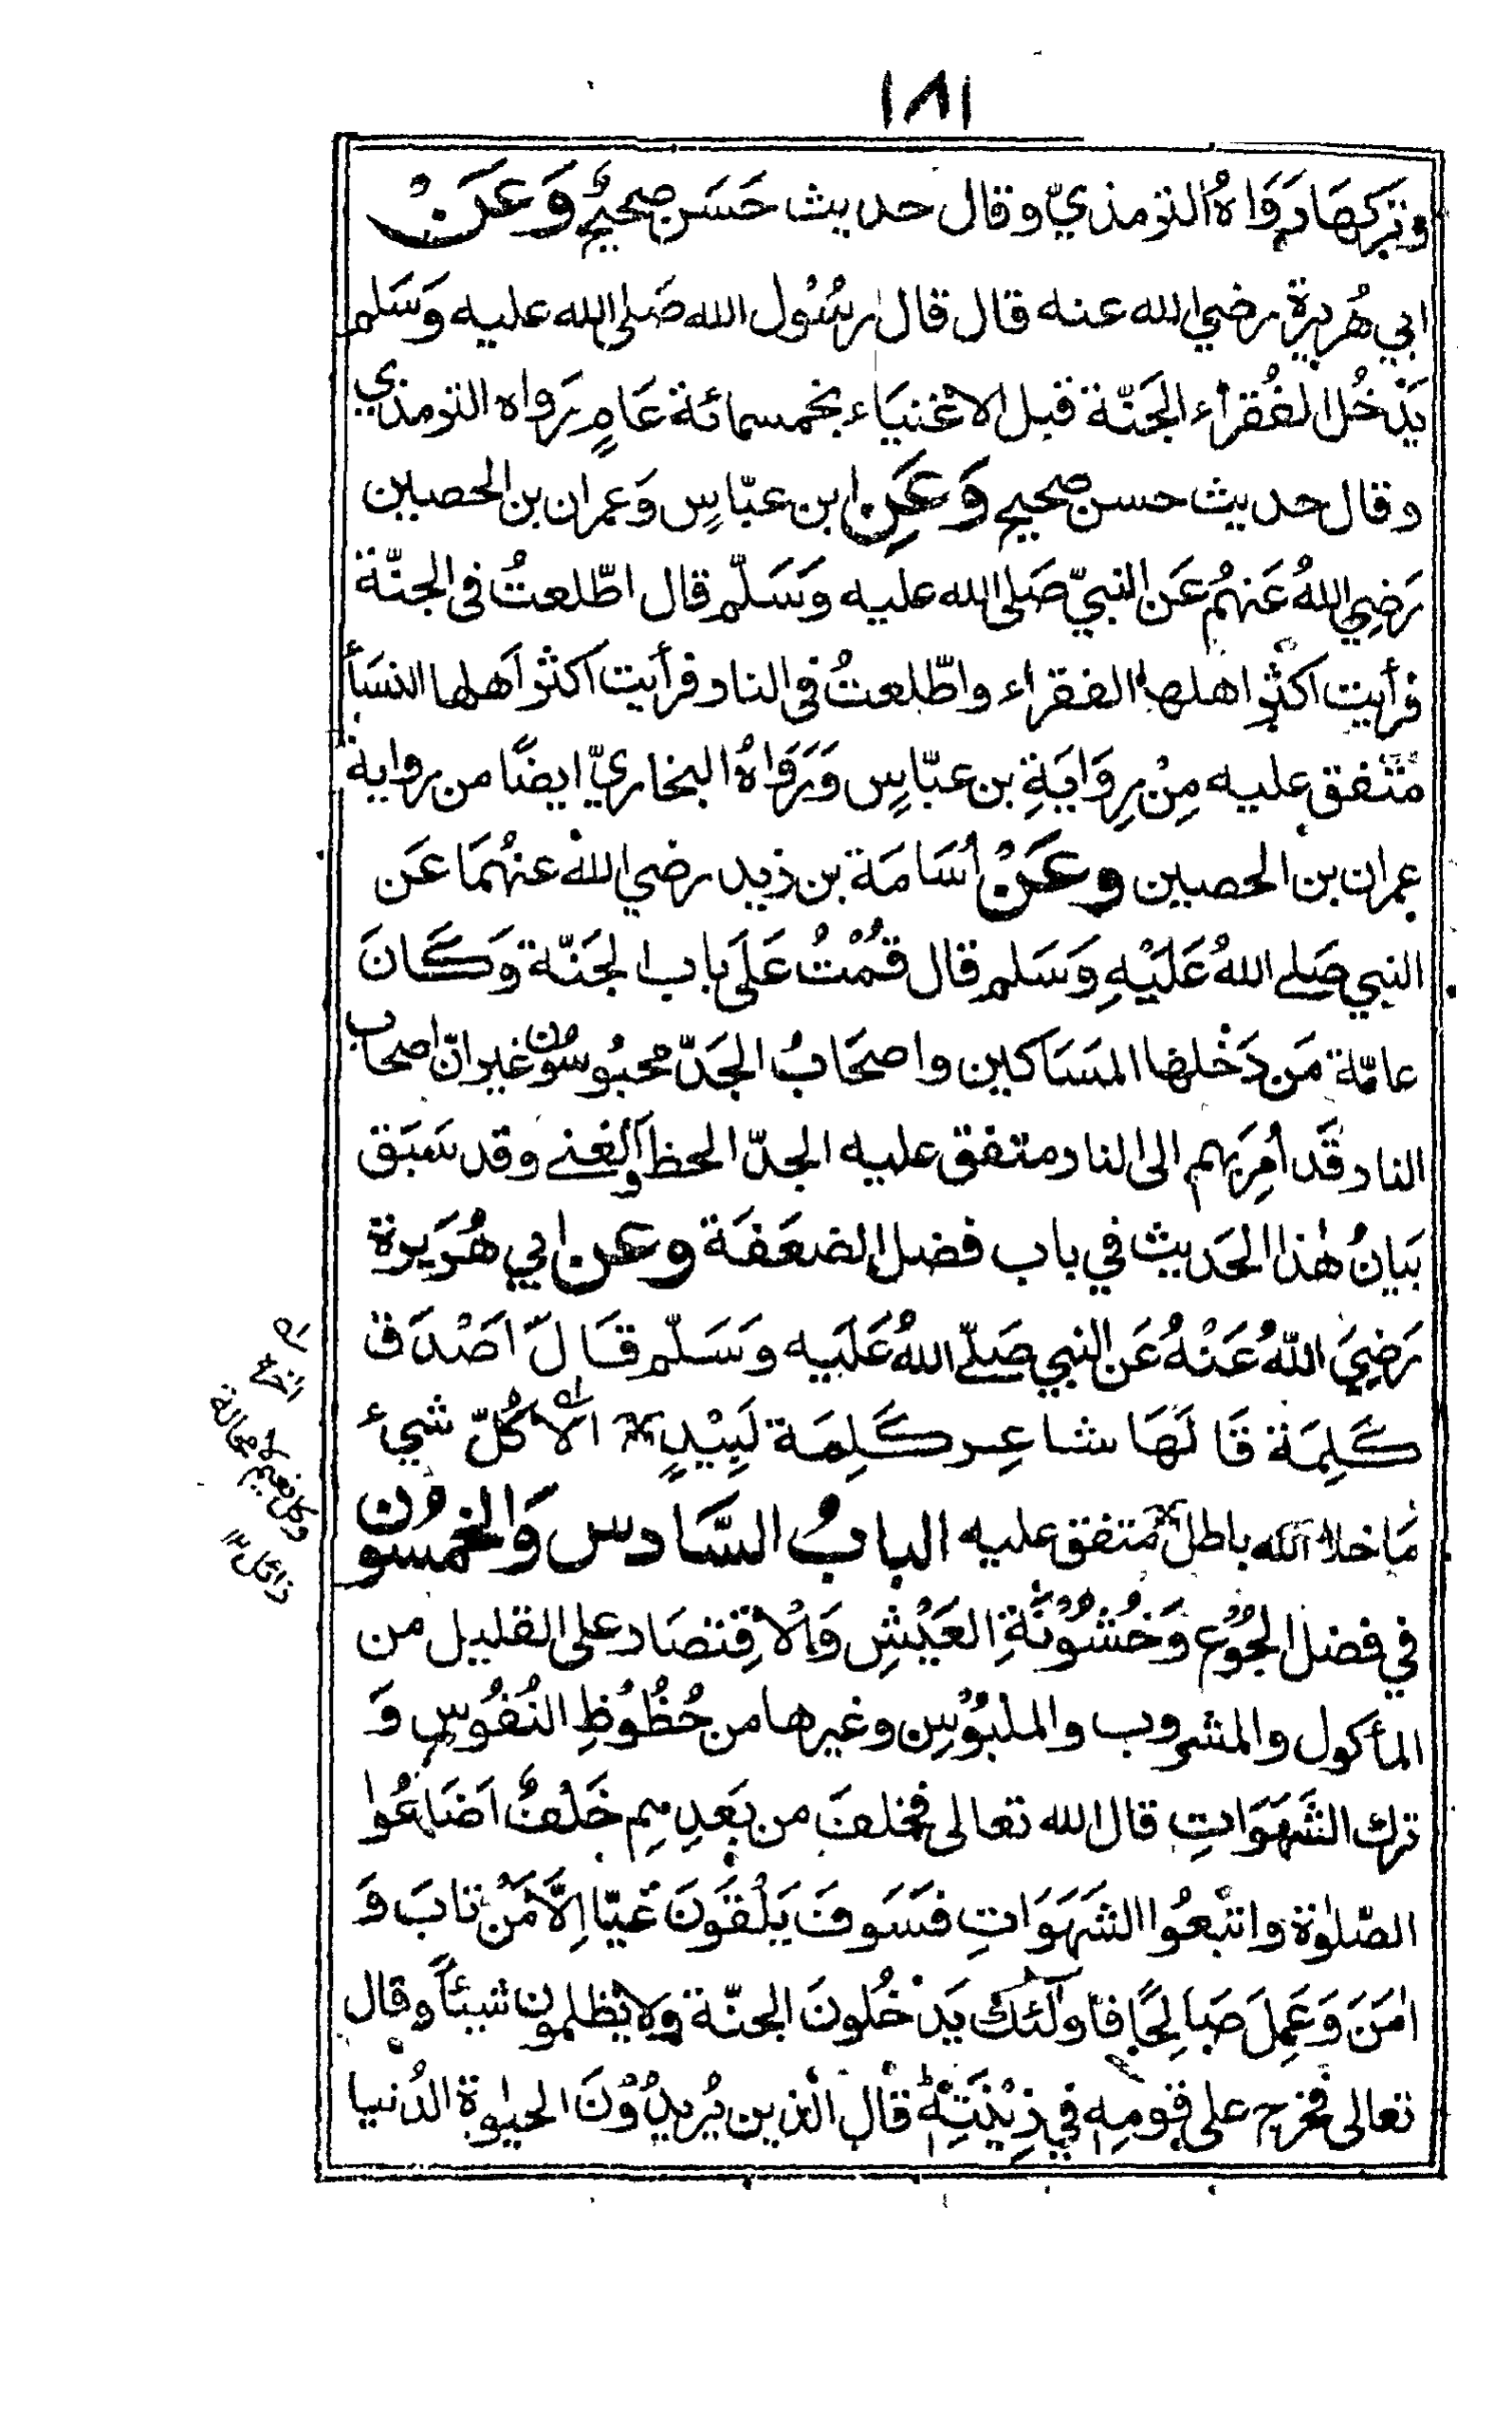 ١٨١
وتركها رَوَاهُ الترمذيّ وقال حديث حَسَن صحيحٌ وَعَنْ
ابي هُريرة رضي الله عنه قال قال رسُول الله صَلى الله عليه وَسَلم
يَدْخُل الفُقراء الجَنّة قبل الاغنيَاء بخمسمائة عَامٍ رَواه الترمذي
وقال حديث حسن صحيح وَعَنِ ابن عبّاسٍ وَعمران بن الحصين
رَضِي اللهُ عَنهُم عَن النبيّ صَلى الله عليه وَسَلّم قال اطّلعتُ فى الجنّة
فرأيت اكثر اهلها الفقراء واطّلعتُ فى النار فرأيت اكثر اَهلها النسَأ
متّفق عليه مِنْ رِوَايَةِ بن عبّاسٍ وَرَوَاهُ البخاريّ ايضًا من رواية
عمران بن الحصين وعَنْ اُسَامَة بن زيد رضي الله عنهُمَا عَن
النبي صَلے اللهُ عَلَيْهِ وَسَلم قال قُمْتُ عَلَى باب الجَنّة وَكَانَ
عامّة مَن دَخْلها المَسَاكين واصحَابُ الجَدّ محبُوسُون غير انّ اصحاب
النار قَد اُمِرَ بهم الى النار متفق عليه الجدّ الحظ والغنے وقد سَبَق
بَيانُ هٰذا الحَديث في باب فضل الضعَفَة وعن ابي هُرَيرة
رَضِيَ اللّهُ عَنْهُ عَن النبي صَلّے اللهُ عَلَيه وَسَلّم قَالَ اَصْدَق
كَلِمَة قَالَهَا شاعِر كَلِمَة لَبِيْدٍ الاَ كُلّ شيْء
مَا خلا اللّه باطلٌ متفق عليه البابُ السَّادس وَالخمسُون
في فضل الجُوْع وَخُشُوْنَةِ العَيْشِ وَالاقِتصَار على القليل من
المأكول والمشروب والملبُوْسِ وغيرها من حُظُوْظِ النُفُوْسِ وَ
ترك الشَهَوَاتِ قال الله تعالى فخلفَ من بَعَدِهِم خَلْفٌ اَضَاعُوا
الصّلوٰة واتّبعُوا الشَهَوَاتِ فَسَوفَ يَلْقَونَ غيّا اِلَّا مَنْ تابَ وَ
اٰمَنَ وَعَمِلَ صَالِحًا فاُولٰئك يَدْخُلونَ الجنّة ولا يُظلمون شيئاً وقال
تعالى فخرج على قومِه في زِيْنَتِهٖ قَال الّذين يُريدُوْنَ الحيٰوة الدُنيا
اه
وكل نعيم لا محالة
زائل ١٢